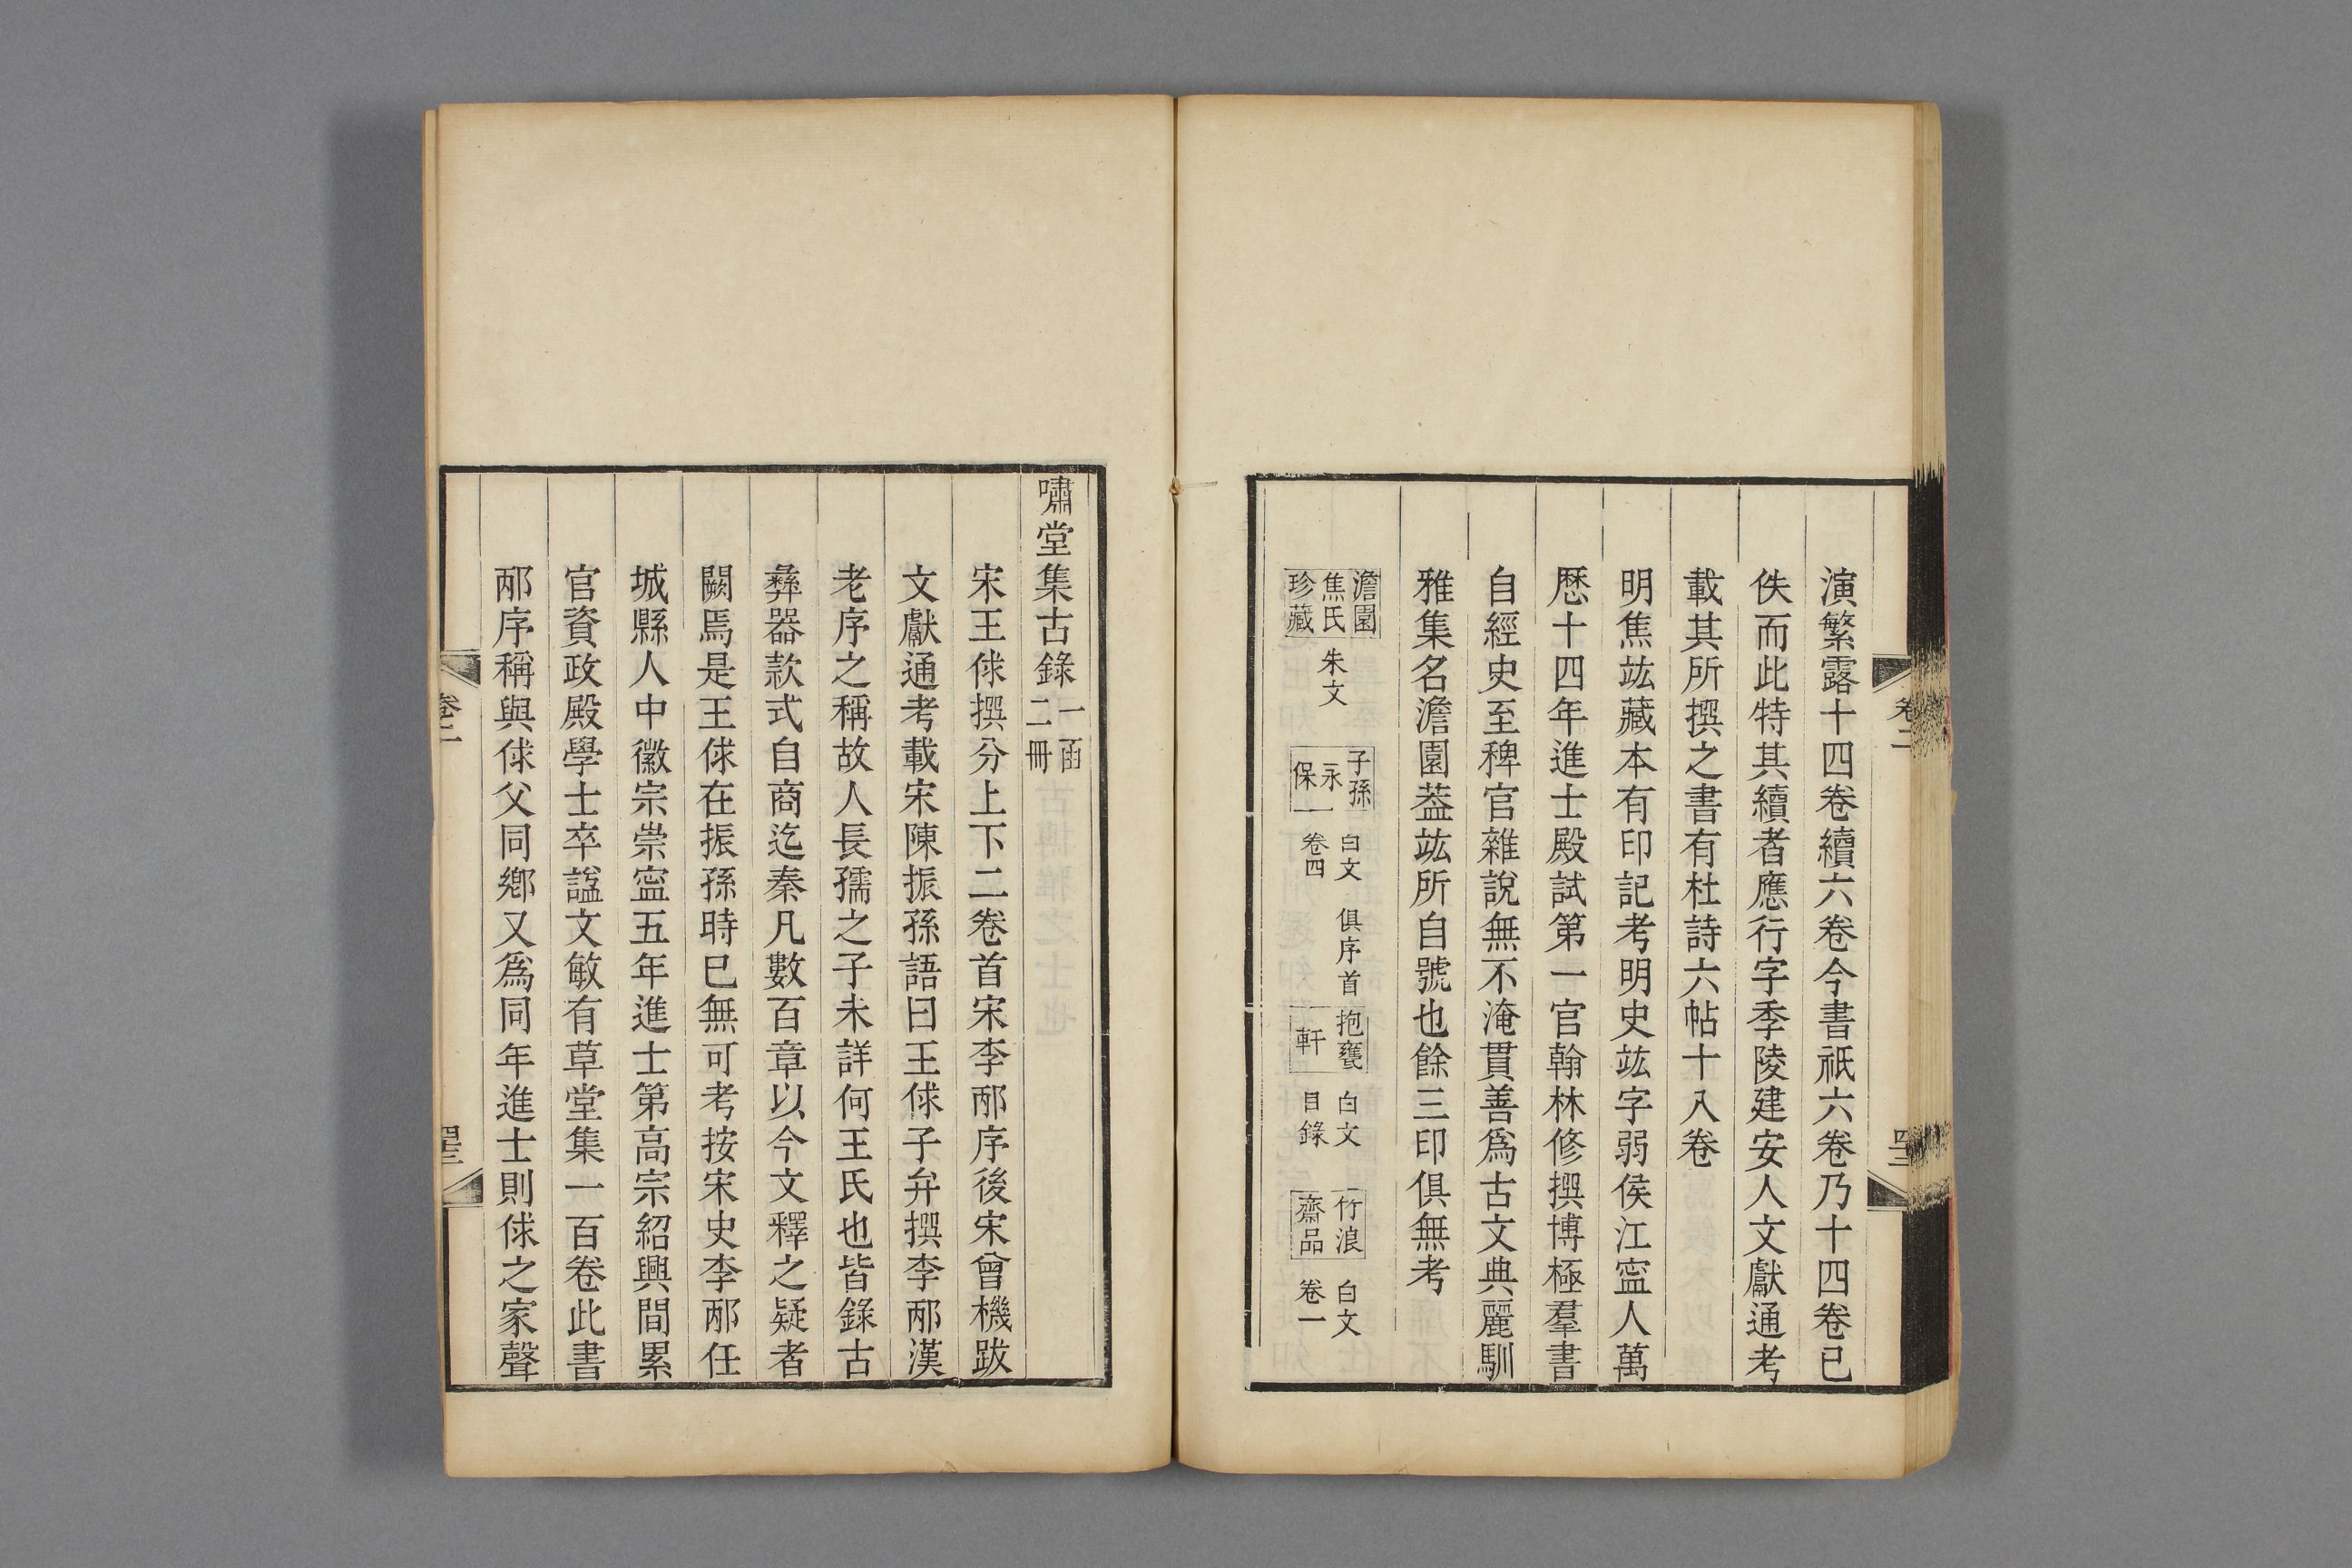 演繁露十四卷續六卷今書祇六卷乃十四卷已
佚而此特其續者應行字季陵建安人文獻通考
載其所撰之書有杜詩六帖十八卷
明焦竑藏本有印記考明史竑字弱侯江寍人萬
厯十四年進士殿試第一官翰林修撰博極羣書
自經史至稗官雜說無不淹貫善爲古文典麗馴
雅集名澹園葢竑所自號也餘三印俱無考
澹園
焦氏
珍藏
朱文
子孫
永
保一
白文
卷四
俱序首
抱甕
軒
白文
目錄
竹浪
齋品
白文
卷一
卷二
嘯堂集古錄
一函
二冊
宋王俅撰分上下二卷首宋李邴序後宋曾機跋
文獻通考載宋陳振孫語曰王俅子弁撰李邴漢
老序之稱故人長孺之子未詳何王氏也皆錄古
彝器款式自商迄秦凡數百章以今文釋之疑者
闕焉是王俅在振孫時已無可考按宋史李邴任
城縣人中徽宗崇寍五年進士第高宗紹興間累
官資政殿學士卒諡文敏有草堂集一百卷此書
邴序稱與俅父同鄉又爲同年進士則俅之家聲
卷二